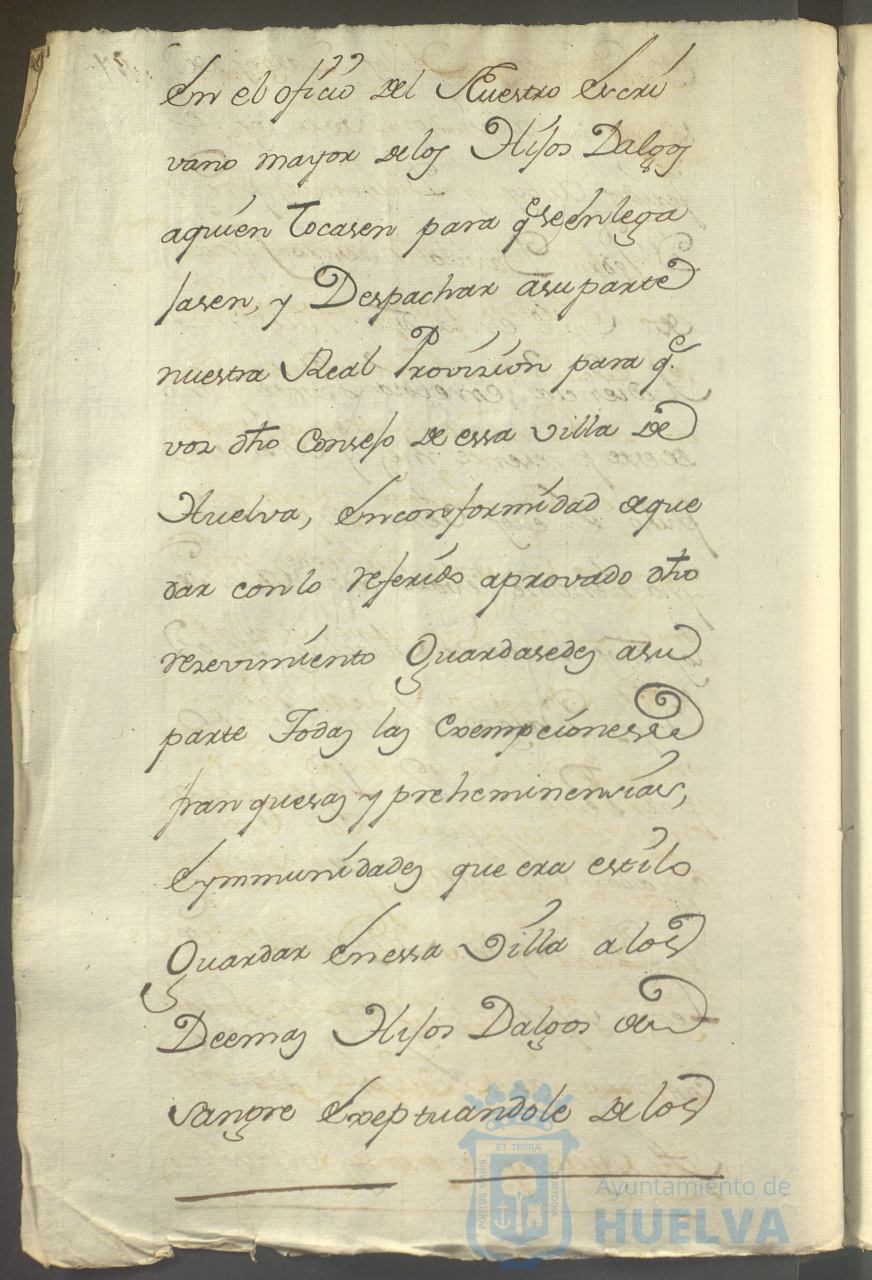 En el oficio del Nuestro Escri
vano mayor delos Hijos Dalgos
aquien tocasen para qe se en lega
jasen, y Despachar asuparte
nuestra Real Provision para qe.
vos dho Consejo de essa villa de
Huelva, en conformidad deque
dar con lo referido aprovado dho
rezevimiento Guardasedes asu
parte Todas las Exempciones
franquesas y preheminensias,
E ymmunidades que era estilo
Guardar en essa Villa a los
Deemas Hijos Dalgos de
sangre Exeptuandole de los
ET TERRÆ
PORTUS MARIS
CUSTODIA
Ayuntamiento de
HUELVA